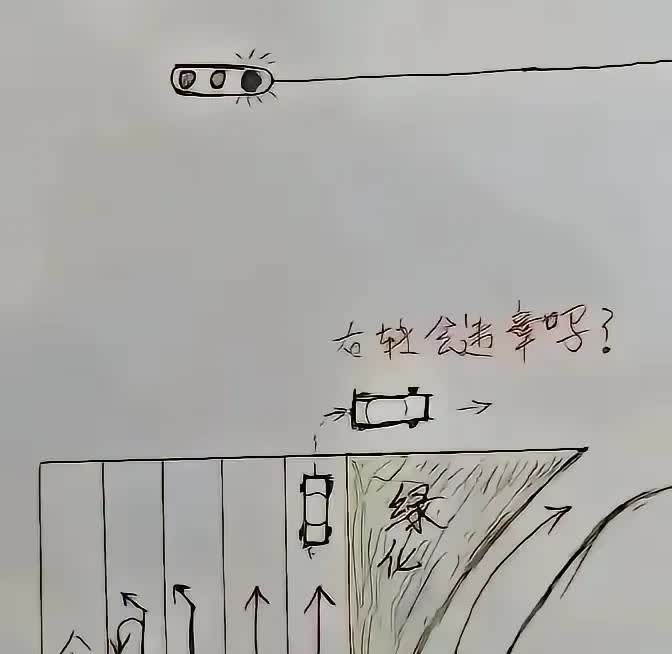 右转会违章吗?
绿
化